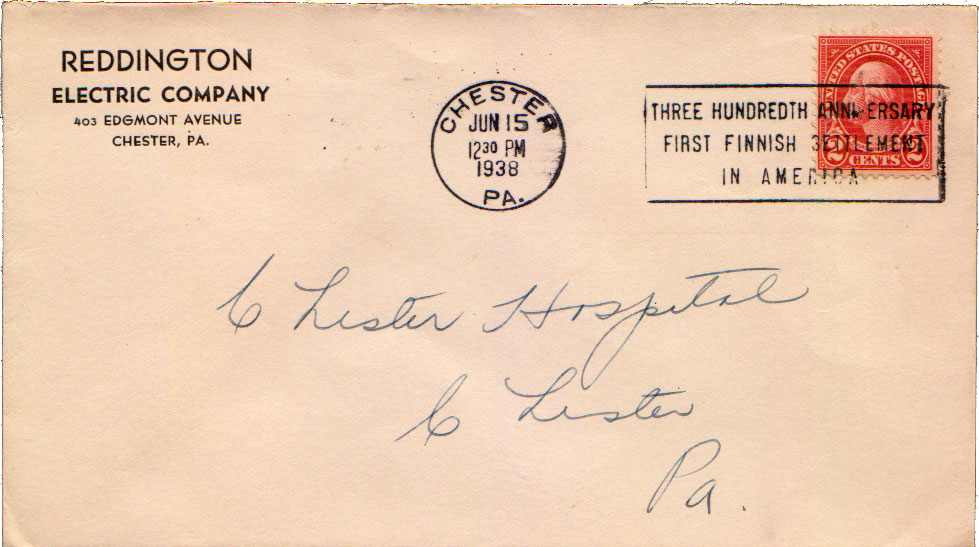 REDDINGTON
ELECTRIC COMPANY
403 EDGMONT AVENUE
CHESTER, PA.
CHESTER
JUN 15
12 30 PM
1938
PA.
THREE HUNDREDTH ANNIVERSARY
FIRST FINNISH SETTLEMENT
IN AMERICA
UNITED STATES POSTAGE
2 CENTS 2
Chester Hospital
Chester
Pa.